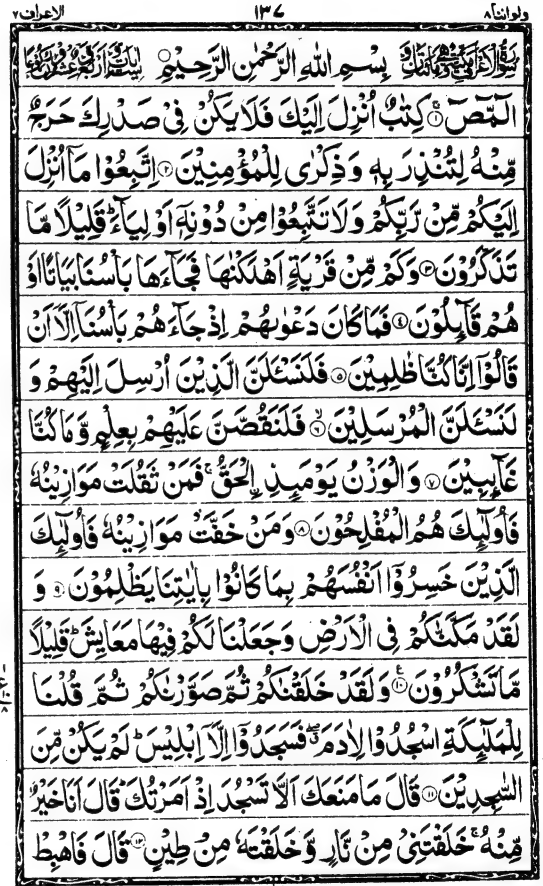 ولواننا ٨ ١٣٧ الاعراف ٧
بِسْمِ اللهِ الرَّحْمٰنِ الرَّحِيْمِ
الٓمّٓصٓ ۚ‏﴿۱﴾ كِتٰبٌ اُنْزِلَ اِلَيْكَ فَلَا يَكُنْ فِىْ صَدْرِكَ حَرَجٌ
مِّنْهُ لِتُنْذِرَ بِهٖ وَ ذِكْرٰى لِلْمُؤْمِنِيْنَ ﴿۲﴾ اِتَّبِعُوْا مَاۤ اُنْزِلَ
اِلَيْكُمْ مِّنْ رَّبِّكُمْ وَلَا تَتَّبِعُوْا مِنْ دُوْنِهٖۤ اَوْلِيَآءَ ؕ قَلِيْلًا مَّا
تَذَكَّرُوْنَ ﴿۳﴾ وَكَمْ مِّنْ قَرْيَةٍ اَهْلَكْنٰهَا فَجَآءَهَا بَاْسُنَا بَيَاتًا اَوْ
هُمْ قَآئِلُوْنَ ﴿۴﴾ فَمَا كَانَ دَعْوٰىهُمْ اِذْ جَآءَهُمْ بَاْسُنَاۤ اِلَّاۤ اَنْ
قَالُوْۤا اِنَّا كُنَّا ظٰلِمِيْنَ ﴿۵﴾ فَلَنَسْـَٔلَنَّ الَّذِيْنَ اُرْسِلَ اِلَيْهِمْ وَ
لَنَسْـَٔلَنَّ الْمُرْسَلِيْنَ ۙ﴿۶﴾ فَلَنَقُصَّنَّ عَلَيْهِمْ بِعِلْمٍ وَّمَا كُنَّا
غَآئِبِيْنَ ﴿۷﴾ وَالْوَزْنُ يَوْمَئِذِ ۨالْحَقُّ ۚ فَمَنْ ثَقُلَتْ مَوَازِيْنُهٗ
فَاُولٰٓئِكَ هُمُ الْمُفْلِحُوْنَ ﴿۸﴾ وَمَنْ خَفَّتْ مَوَازِيْنُهٗ فَاُولٰٓئِكَ
الَّذِيْنَ خَسِرُوْۤا اَنْفُسَهُمْ بِمَا كَانُوْا بِاٰيٰتِنَا يَظْلِمُوْنَ ﴿۹﴾ وَ
لَقَدْ مَكَّنّٰكُمْ فِى الْاَرْضِ وَجَعَلْنَا لَكُمْ فِيْهَا مَعَايِشَ ؕ قَلِيْلًا
مَّا تَشْكُرُوْنَ ﴿۱۰﴾ وَلَقَدْ خَلَقْنٰكُمْ ثُمَّ صَوَّرْنٰكُمْ ثُمَّ قُلْنَا
لِلْمَلٰٓئِكَةِ اسْجُدُوْا لِاٰدَمَ ۖ فَسَجَدُوْۤا اِلَّاۤ اِبْلِيْسَ ؕ لَمْ يَكُنْ مِّنَ
السّٰجِدِيْنَ ﴿۱۱﴾ قَالَ مَا مَنَعَكَ اَلَّا تَسْجُدَ اِذْ اَمَرْتُكَ ؕ قَالَ اَنَا خَيْرٌ
مِّنْهُ ۚ خَلَقْتَنِىْ مِنْ نَّارٍ وَّخَلَقْتَهٗ مِنْ طِيْنٍ ﴿۱۲﴾ قَالَ فَاهْبِطْ